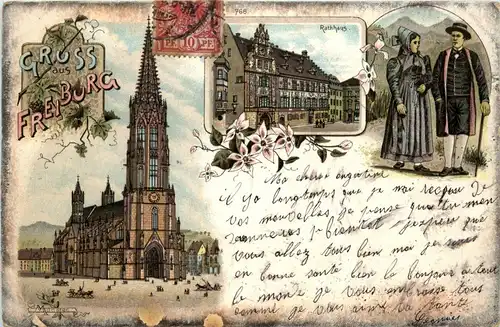 GRUSS
aus
FREIBURG
766
Rathhaus
10 PF
Ma chère
il y a longtemps que je n'ai reçu de
vos nouvelles je pense que tu m'en
donneras bientôt j'espère que
vous allez tous bien moi je suis
en bonne santé bien le bonjour a tout
le monde je vous embrasse tous
comme je vous aime ta tante